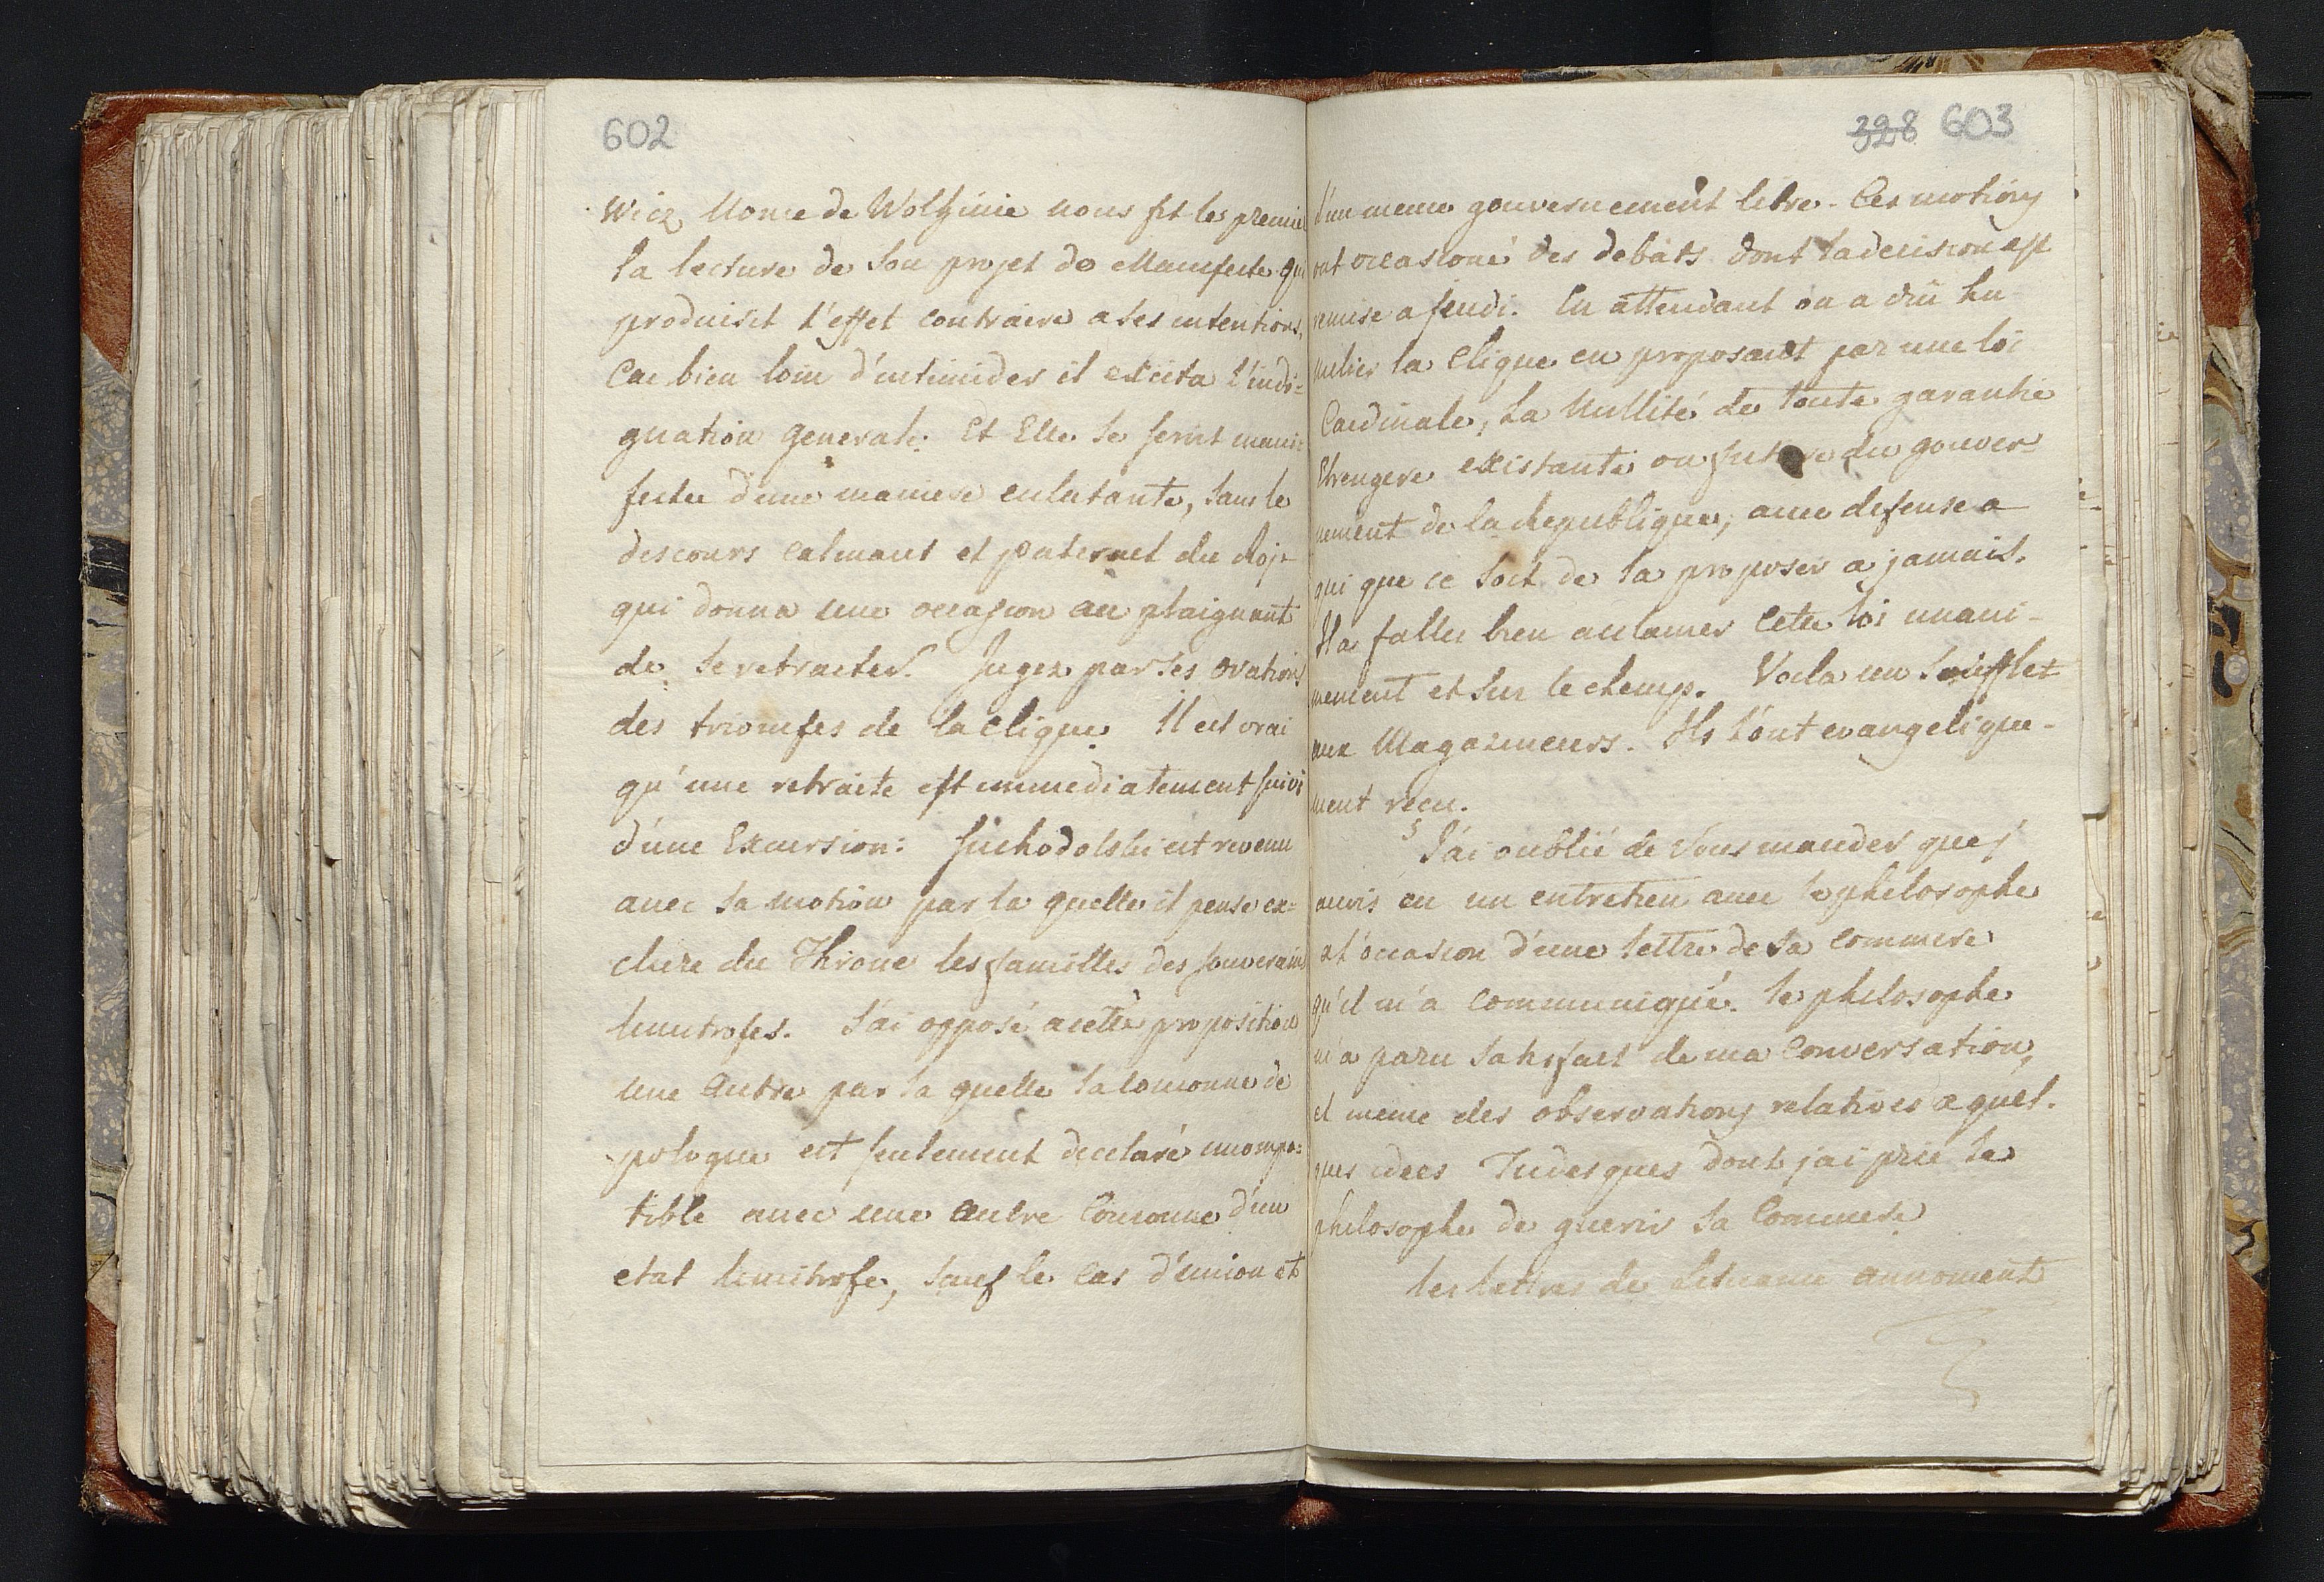 602
wicz Nonce de Wolhinie nous fit les premie
la lecture de son projet de Manifeste qui
produisit l'effet contraire a ses intentions,
Car bien loin d'intimider il excita l'indi=
gnation generale. Et Elle se seroit mani=
festée d'une maniere eclatante, sans le
descours calmant et paternel du Roj
qui donna une occasion au plaignant
de se retracter. Jugez par ses ovations
des triomfes de la clique. Il est vrai
qu'une retraite est immediatement suivi
d'une Excursion: Suchodolski est revenu
avec sa motion par la quelle il pense ex=
clure du Throne les familles des souverains
limitrofes. J'ai opposé a cette proposition
une Autre par la quelle la Couronne de
pologne est seulement declaré incompa=
tible avec une Autre Couronne d'un
etat limitrofe, sauf le cas d'union et
328 603
d'un meme gouvernement libre. Ces motions
ont occasioné des debats dont la decision est
remise a jeudi. En attendant on a dû hu
milier la Clique en proposant par une loi
Cardinale, la Nullité de toute garantie
Etrangere existante ou future du gouver=
nement de la Republique, avec defense a
qui que ce soit de la proposer a jamais.
Il a fallu bien aclamer cette loi unani-
mement et sur le champ. Voila un soufflet
aux Magazineurs. Ils l'ont evangelique-
ment recu.
J'ai oublié de vous mander que j'
avois eu un entretien avec le philosophe
a l'occasion d'une lettre de sa Commere
qu'il m'a communiqué. le philosophe
m'a paru satisfait de ma Conversation,
et meme des observations relatives a quel.
ques idees Tudesques dont j'ai prié le
philosophe de guerir sa Commere
les lettres de Lituanie annoncent